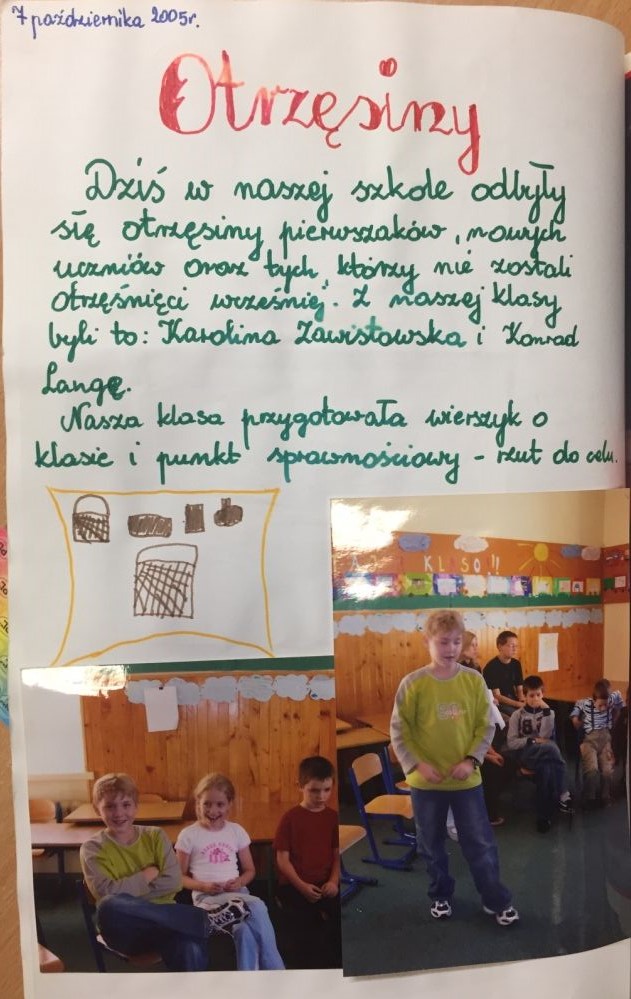 7 października 2005r.
Otrzęsiny
Dziś w naszej szkole odbyły
się otrzęsiny pierwszaków, nowych
uczniów oraz tych, którzy nie zostali
otrzęśnięci wcześniej. Z naszej klasy
byli to: Karolina Zawistowska i Konrad
Langę.
Nasza klasa przygotowała wierszyk o
klasie i punkt sprawnościowy - rzut do celu.
KLASO!!